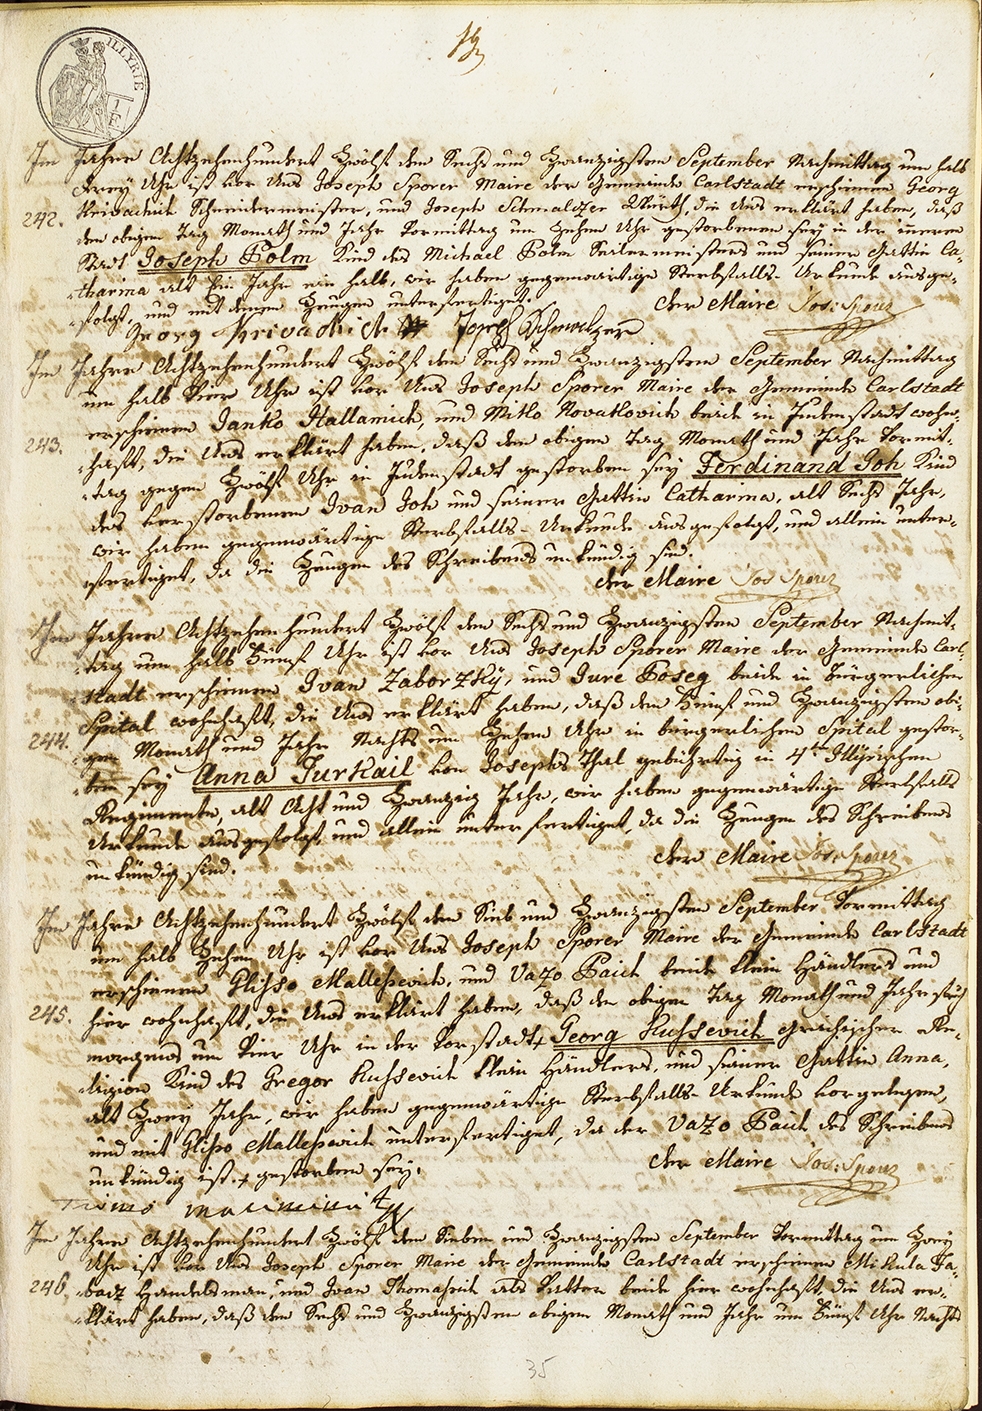 ILLYRIE
1 F.
Im Jahre Achtzehenhundert Zwölf den Sechs und Zwanzigsten September Nachmittag um halb
drey Uhr ist vor Uns Joseph Sporer Maire der Gemeinde Carlstadt erschienen Georg
242. Krivachich Schneidermeister, und Joseph Schmalczer Wirth, die Uns erklärt haben, daß
den obigen Tag Monath und Jahr Vormittag um Zehen Uhr gestorben sey in der inneren
Stadt Joseph Polm Kind des Michael Polm Seilermeisters und seiner Gattin Ca-
tharina alt Ein Jahr ein halb, wir haben gegenwärtige Sterbfalls-Urkunde ausge-
folgt, und mit denen Zeugen unterfertiget.
der Maire Jos: Sporer
Georg Krivachich Joseph Schmalczer
Im Jahre Achtzehenhundert Zwölf den Sechs und Zwanzigsten September Nachmittag
um halb Vier Uhr ist vor Uns Joseph Sporer Maire der Gemeinde Carlstadt
erschienen Janko Hallamich, und Mitko Novatlovich beide in Judenstadt wohn-
243. haft, die Uns erklärt haben, daß den obigen Tag Monath und Jahr Vormit-
tag gegen Zwölf Uhr in Judenstadt gestorben sey Ferdinand Joh Kind
des verstorbenen Ivan Joh und seiner Gattin Catharina, alt Sechs Jahr,
wir haben gegenwärtige Sterbfalls-Urkunde ausgefolgt, und allein unter-
fertiget, da die Zeugen des Schreibens unkündig sind.
der Maire Jos Sporer
Im Jahre Achtzehenhundert Zwölf den Sechs und Zwanzigsten September Nachmit-
tag um halb Fünf Uhr ist vor Uns Joseph Sporer Maire der Gemeinde Carl-
stadt erschienen Ivan Zaborzký, und Jure Poseg beide in Bürgerlichen
Spital wohnhaft, die Uns erklärt haben, daß den Fünf und Zwanzigsten obi-
244. gen Monath und Jahr Nachts um Zehen Uhr in bürgerlichen Spital gestor-
ben sey Anna Turkail von Josephs Thal gebürtig in 4ten Illÿrischen
Regimente, alt Acht und Zwanzig Jahr, wir haben gegenwärtige Sterbfalls
Urkunde ausgefolgt, und allein unterfertiget, da die Zeugen des Schreibens
unkündig sind.
der Maire Jos: Sporer
Im Jahre Achtzehenhundert Zwölf den Sieb und Zwanzigsten September Vormittag
um halb Zehen Uhr ist vor Uns Joseph Sporer Maire der Gemeinde Carlstadt
erschienen Glisso Mallessevich, und Vazo Paich beide klein Händlers und
245. hier wohnhaft, die Uns erklärt haben, daß den obigen Tag Monath und Jahr früh
morgens um Vier Uhr in der Vorstadt Georg Kussevich Griechischer Re-
ligion Kind des Gregor Kussevich klein Händlers, und seiner Gattin Anna,
alt Zwey Jahr, wir haben gegenwärtige Sterbfalls-Urkunde vorgelesen,
und mit Glisso Mallessevich unterfertiget, da der Vazo Paich des Schreibens
unkündig ist. gestorben sey.
der Maire Jos: Sporer
Im Jahre Achtzehenhundert Zwölf den Sieben und Zwanzigsten September Vormittag um Zwey
Uhr ist vor Uns Joseph Sporer Maire der Gemeinde Carlstadt erschienen Mikula Ta-
246. badz Handelsman, und Ivan Thomassich als Vatter beide hier wohnhaft, die Uns er-
klärt haben, daß den Sechs und Zwanzigsten obigen Monath und Jahr um Fünf Uhr Nachts
35